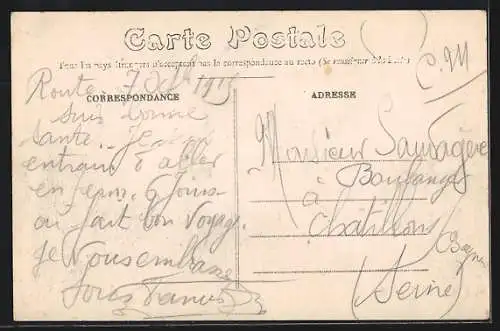 Carte Postale
Tous les pays étrangers n'acceptent pas la correspondance au recto (Se renseigner à la Poste)
C. M
CORRESPONDANCE
ADRESSE
Route 7 1915
suis bonne
sante. Je
entrain d aller
en 6 Jours
on fait bon Voyage
Je Vous embrasse
tous
Monsieur Sauvagère
Boulanger
à
Chatillon
(Seine)